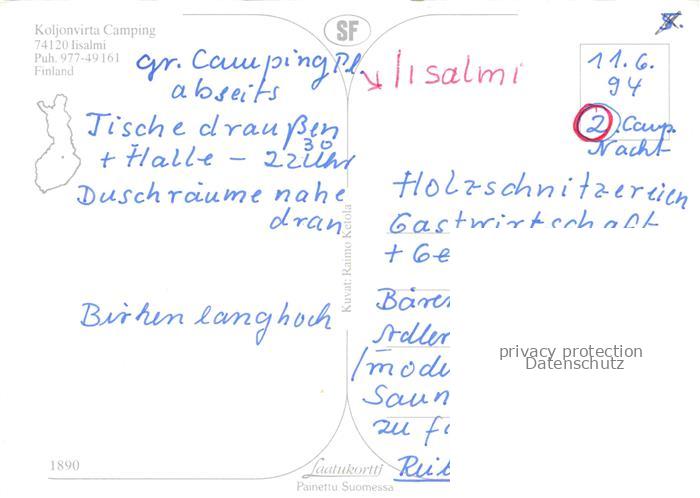 Koljonvirta Camping
74120 Iisalmi
Puh. 977-49161
Finland
SF
gr. Camping Pl.
abseits
Tische draußen
+ Halle – 22 30 Uhr
Duschräume nahe
dran
Birken langhoch
1890
Kuvat: Raimo Ketola
Laatukortti
Painettu Suomessa
Iisalmi
11.6.
94
2. Camp.
Nacht
Holzschnitzereien
Gastwirtschaft
+ Ge
Bären
Adler
/mode
Saun
zu f
Reit
privacy protection
Datenschutz